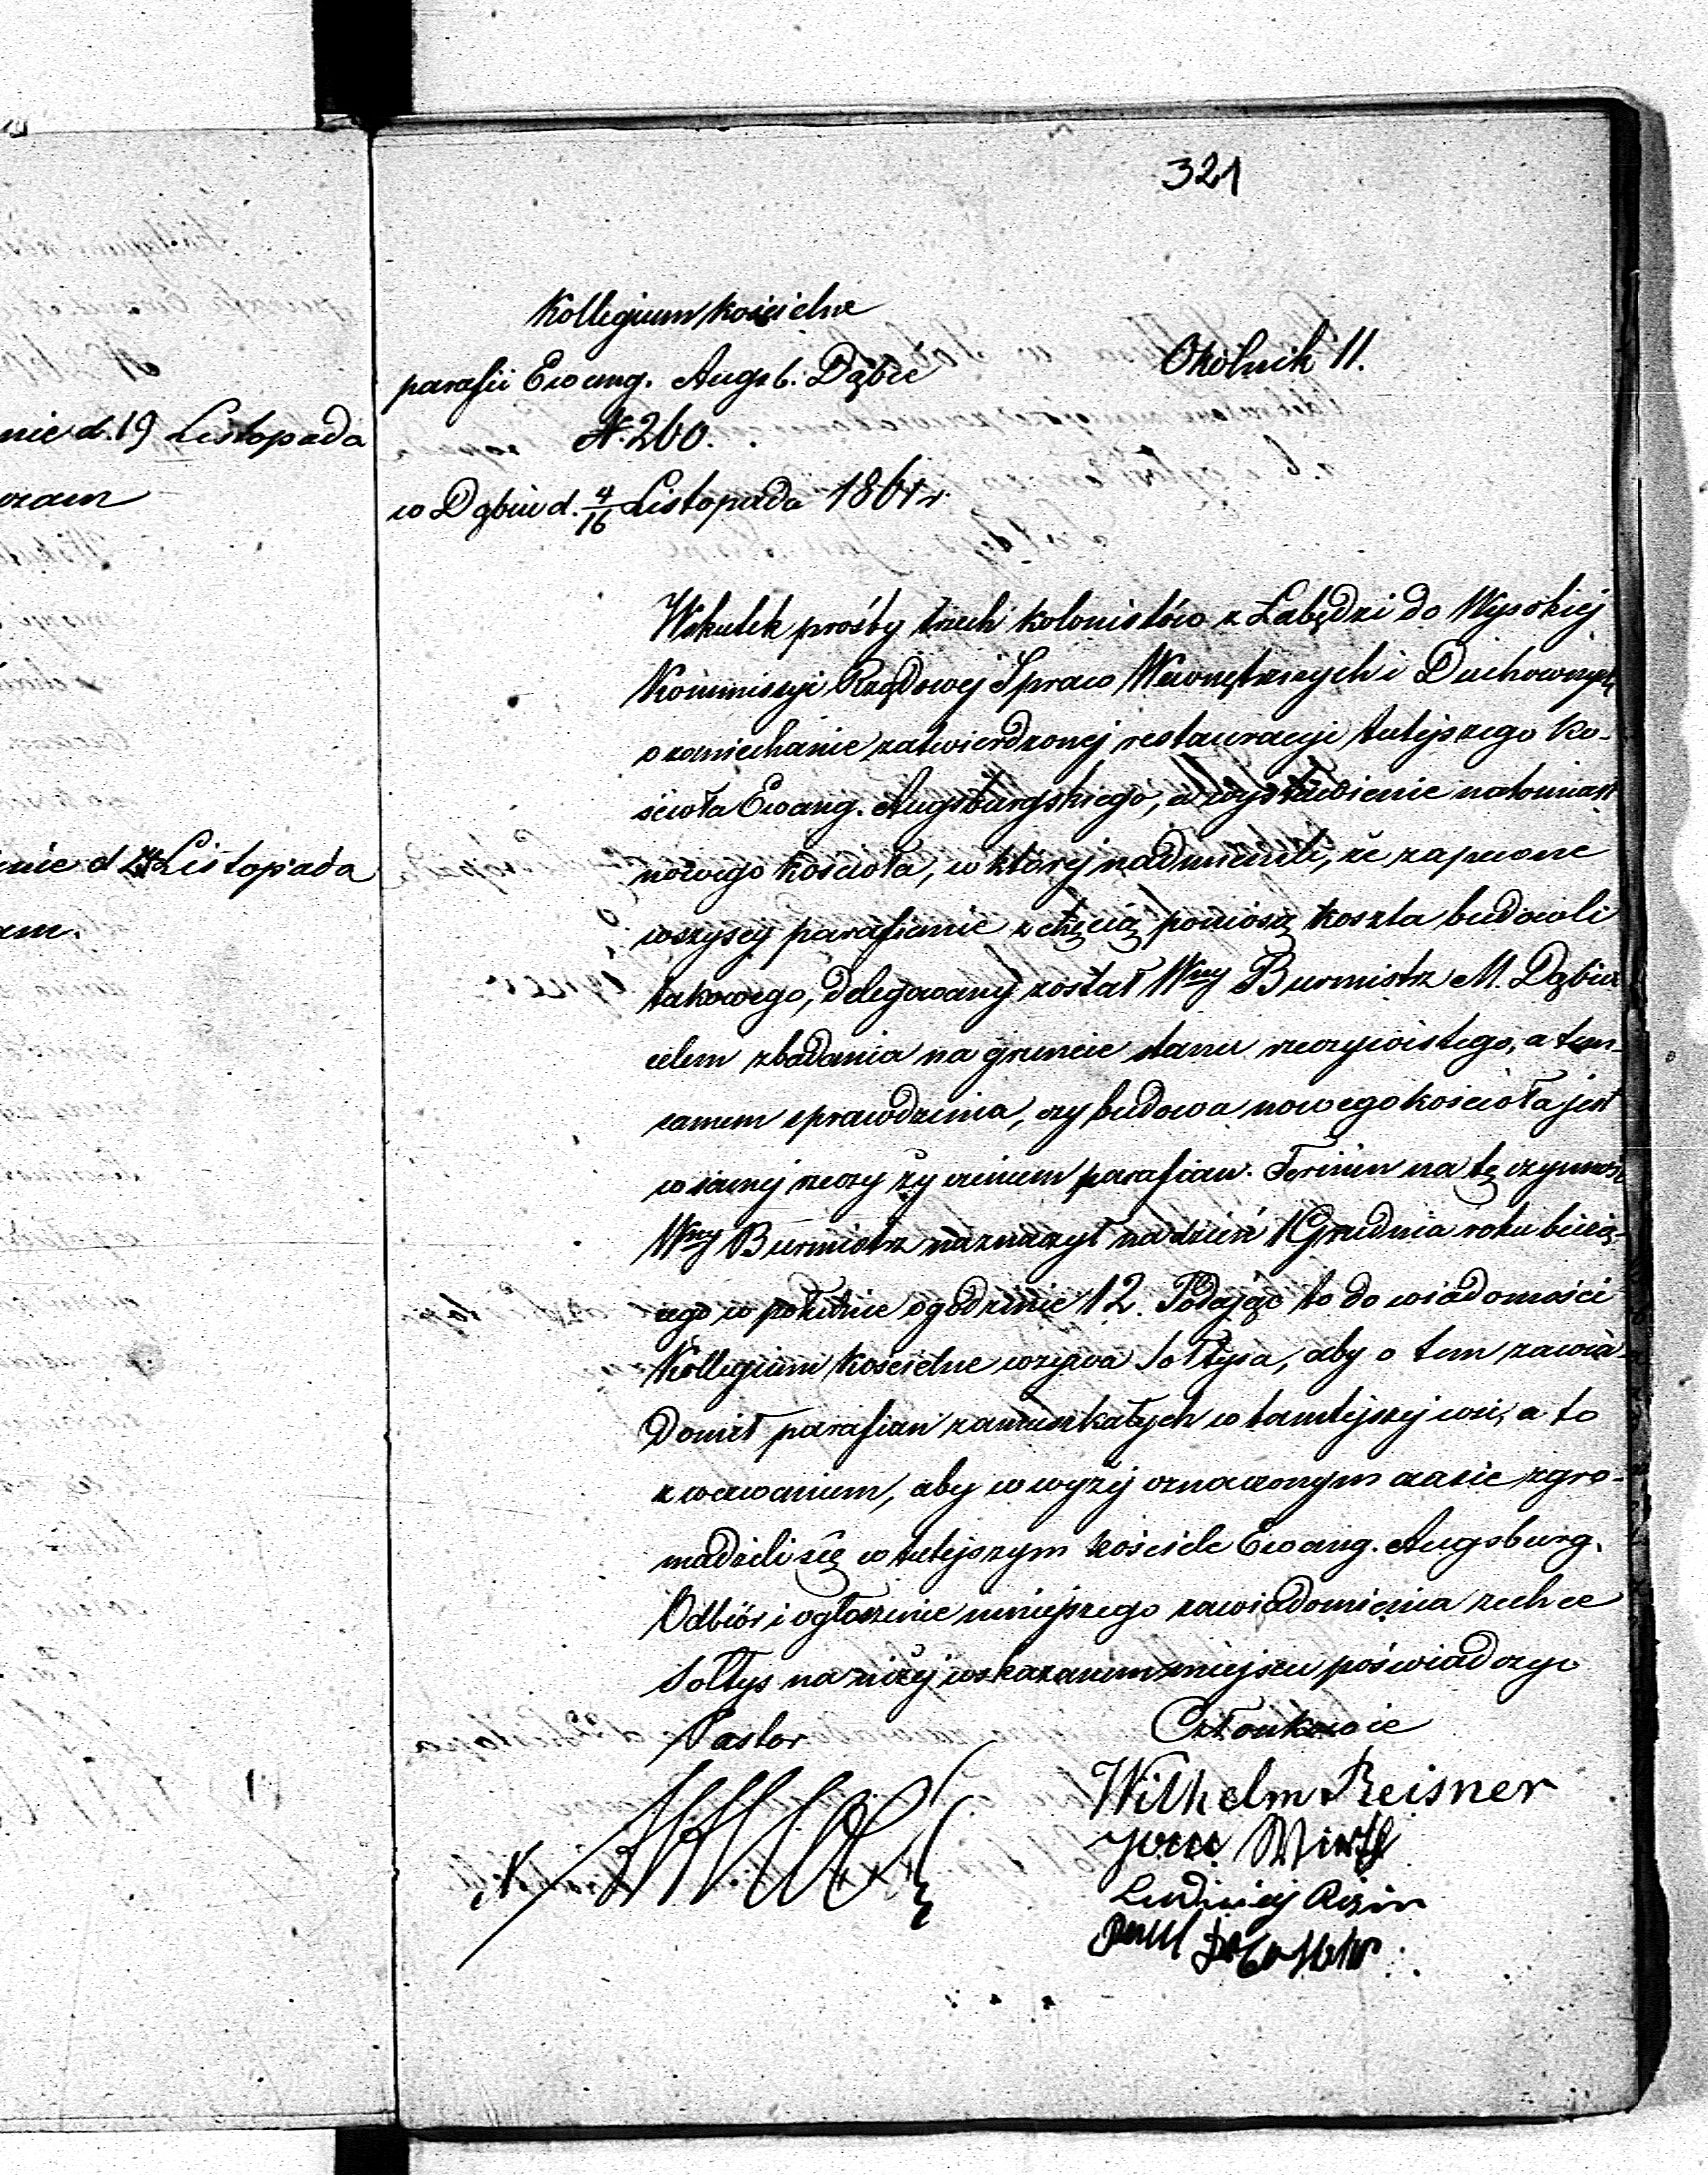 321
Kollegium Kościelne
parafii Ewang. Augsb. Dąbie
Okólnik 11.
N. 260.
w Dąbiu d. 4/16 Listopada 1861 r.
nie d. 19 Listopada
Wskutek prośby trzech kolonistów z Łabędzi do Wysokiej
Kommissyi Rządowej Spraw Wewnętrznych i Duchownych
o zaniechanie zatwierdzonej restauracyi tutejszego Ko-
ścioła Ewang. Augsburgskiego, a wystawienie natomiast
nowego kościoła, w której nadmienili, że zapewne
wszyscy parafianie z chęcią poniosą koszta budowli
nie d. Listopada
takowego, delegowany został Wny Burmistrz M. Dąbia
celem zbadania na gruncie stanu rzeczywistego, a tem-
samem sprawdzenia, czy budowa nowego kościoła jest
w samej rzeczy życzeniem parafian. Termin na tę czynność
Wny Burmistrz naznaczył na dzień 1 Grudnia roku bieżą-
cego w południe o godzinie 12. Podając to do wiadomości
Kollegium Kościelne wzywa Sołtysa, aby o tem zawia-
domił parafian zamieszkałych w tamtejszej wsi, a to
z wezwaniem, aby w wyżej oznaczonym czasie zgro-
madzili się w tutejszym kościele Ewang. Augsburg.
Odbiór i ogłoszenie niniejszego zawiadomienia zechce
Sołtys na niżej wskazanem miejscu poświadczyć
Pastor
Członkowie
Wilhelm Reisner